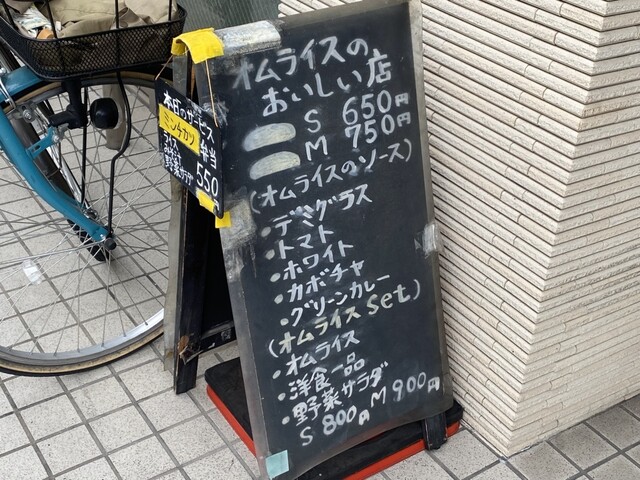 オムライスの
おいしい店
S 650円
M 750円
(オムライスのソース)
・デミグラス
・トマト
・ホワイト
・カボチャ
・グリーンカレー
(オムライス set)
・オムライス
・洋食一品
・野菜サラダ
S 800円 M 900円
本日のサービス
ミンチカツ
弁当
ライス
野菜サラダ
550